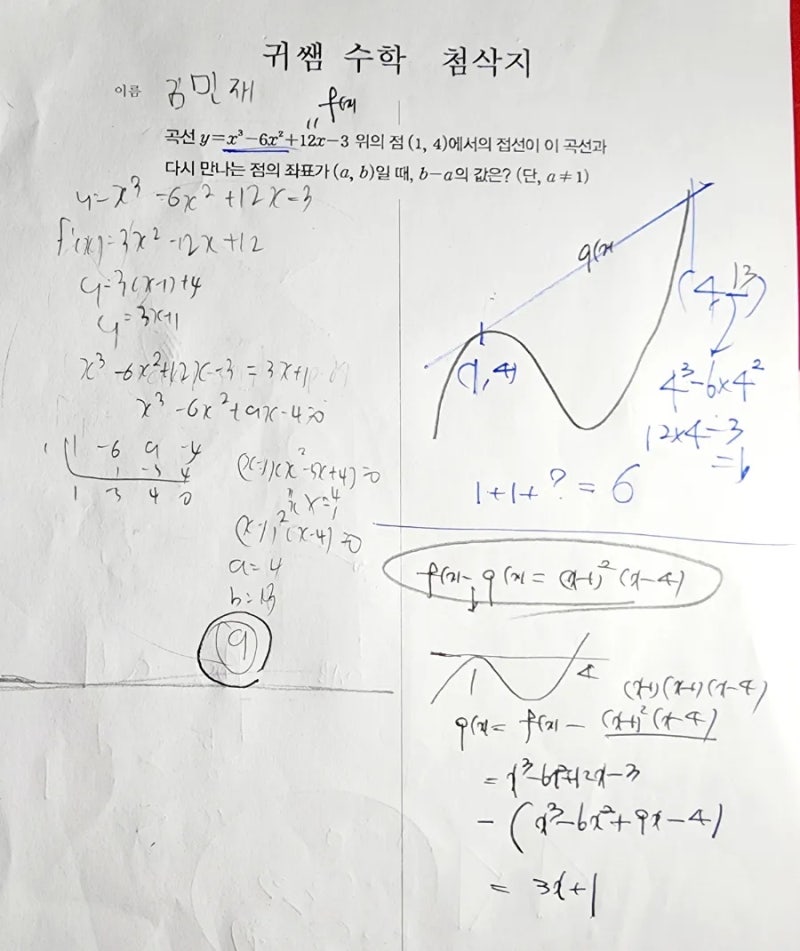 귀쌤 수학 첨삭지
이름 김민재
f(x)
곡선 y=x³-6x²+12x-3 위의 점 (1, 4)에서의 접선이 이 곡선과
다시 만나는 점의 좌표가 (a, b)일 때, b-a의 값은? (단, a≠1)
y=x³-6x²+12x-3
f'(x)=3x²-12x+12
y=3(x-1)+4
y=3x+1
x³-6x²+12x-3=3x+1
x³-6x²+9x-4=0
1 1 -6 9 -4
1 -5 4
1 -5 4 0
(x-1)(x²-5x+4)=0
x=4
1
(x-1)²(x-4)=0
a=4
b=13
9
g(x)
(4, 13)
(1, 4)
4³-6×4²
12×4-3
=b
1+1+?=6
f(x)-g(x)=(x-1)²(x-4)
1 4
(x-1)(x-1)(x-4)
g(x)=f(x)-(x-1)²(x-4)
=x³-6x²+12x-3
-(x³-6x²+9x-4)
=3x+1